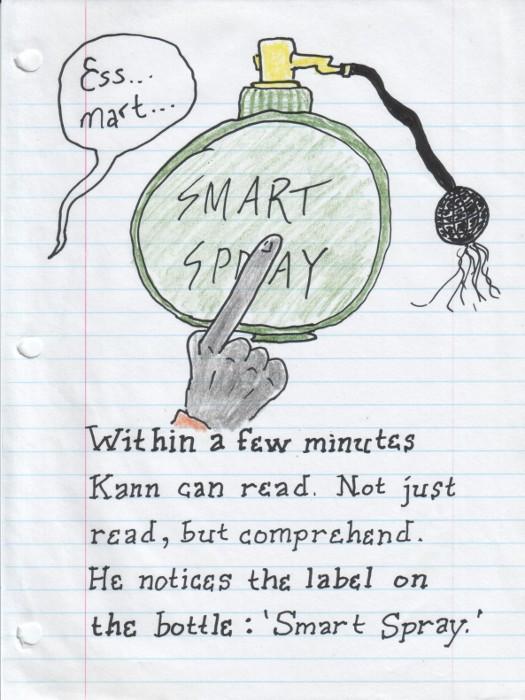 Ess...
mart...
SMART
SPRAY
Within a few minutes
Kann can read. Not just
read, but comprehend.
He notices the label on
the bottle: 'Smart Spray.'